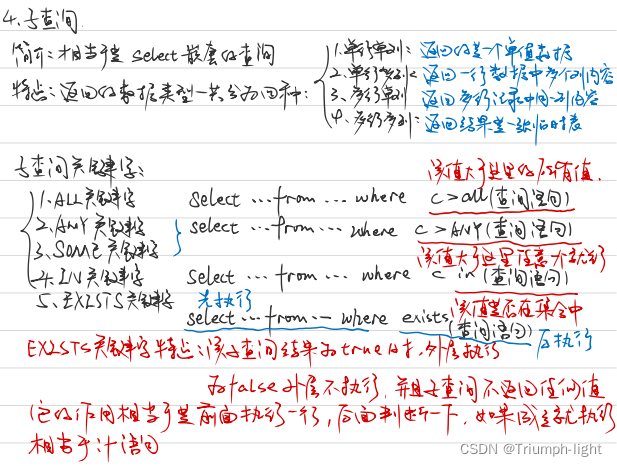 4.子查询
简介:相当于是 select 嵌套的查询
特点:返回的数据类型一共分为四种:
1.单行单列:返回的是一个单值数据
2.单行多列:返回一行数据中多个列内容
3.多行单列:返回多行记录中同一列内容
4.多行多列:返回结果是一张临时表
子查询关键字:
该值大于这里的所有值.
1.ALL关键字 select …from… where c>all(查询语句)
2.ANY关键字 select …from… where c>ANY(查询语句)
3.SOME关键字
该值大于这里任意一个就行
4.IN关键字 select …from… where c in(查询语句)
5.EXISTS关键字 先执行 该值是否在集合中
select…from… where exists(查询语句) 后执行
EXISTS关键字特点:该子查询结果为true时,外层执行
为false外层不执行,并且子查询不返回任何值
它的作用相当于是前面执行一行,后面判断一下,如果成立就执行
相当于if语句
CSDN @Triumph-light